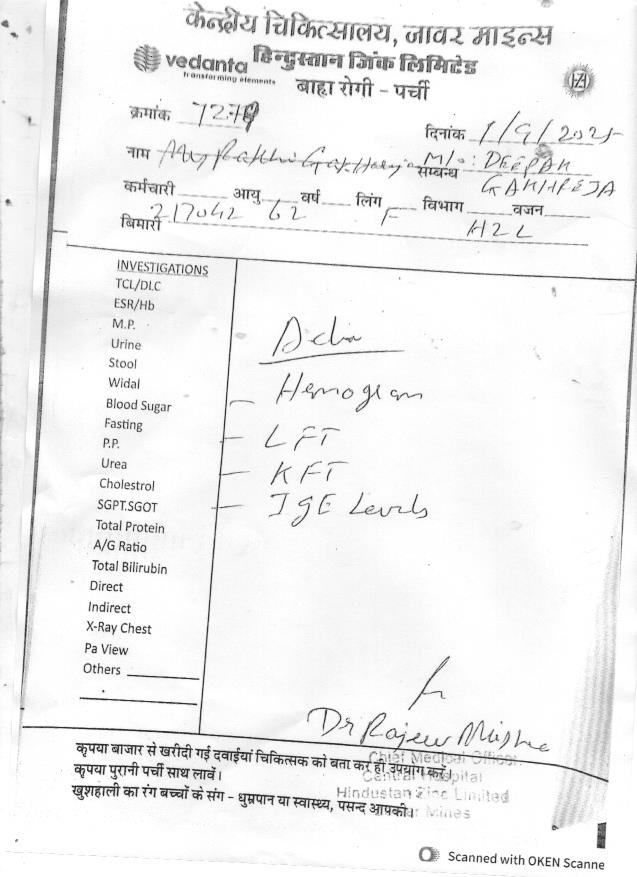 केन्द्रीय चिकित्सालय, जावर माइन्स
vedanta हिन्दुस्तान जिंक लिमिटेड
transforming elements
बाहा रोगी - पर्ची
क्रमांक
दिनांक 1/9/2025
नाम M/o: DEEPAK
सम्बन्ध GAKHREJA
कर्मचारी आयु वर्ष लिंग विभाग वजन
217042 62 F HZL
बिमारी
INVESTIGATIONS
TCL/DLC
ESR/Hb
M.P.
Urine
Stool
Widal
Blood Sugar
Fasting
P.P.
Urea
Cholestrol
SGPT.SGOT
Total Protein
A/G Ratio
Total Bilirubin
Direct
Indirect
X-Ray Chest
Pa View
Others
- Hemogram
- LFT
- KFT
- IgE Levels
Dr Rajeev Mishra
Chief Medical Officer
Central Hospital
Hindustan Zinc Limited
Mines
कृपया बाजार से खरीदी गई दवाईयां चिकित्सक को बता कर ही उपयोग करें।
कृपया पुरानी पर्ची साथ लावें।
खुशहाली का रंग बच्चों के संग - धुम्रपान या स्वास्थ्य, पसन्द आपकी।
Scanned with OKEN Scanne